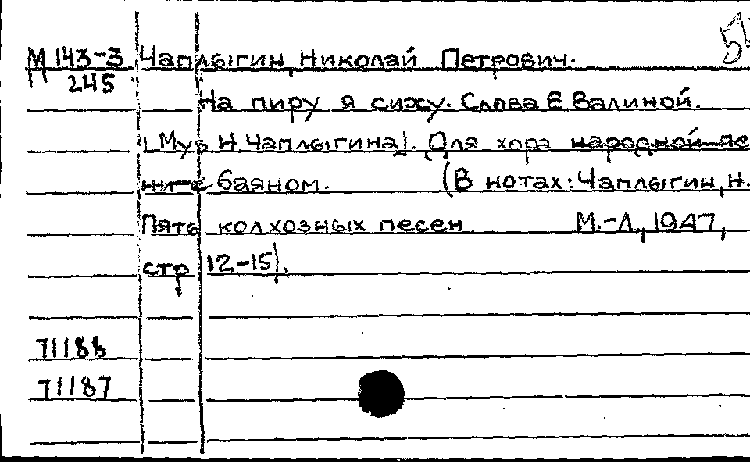 5
М 143-3 Чаплыгин, Николай Петрович.
245
На пиру я сижу. Слова Е Валиной.
[Муз Н. Чаплыгина]. Для хора народной пе
ни с баяном. (В нотах: Чаплыгин, Н.
Пять колхозных песен М.-Л., 1947,
стр 12-15).
71188
71187